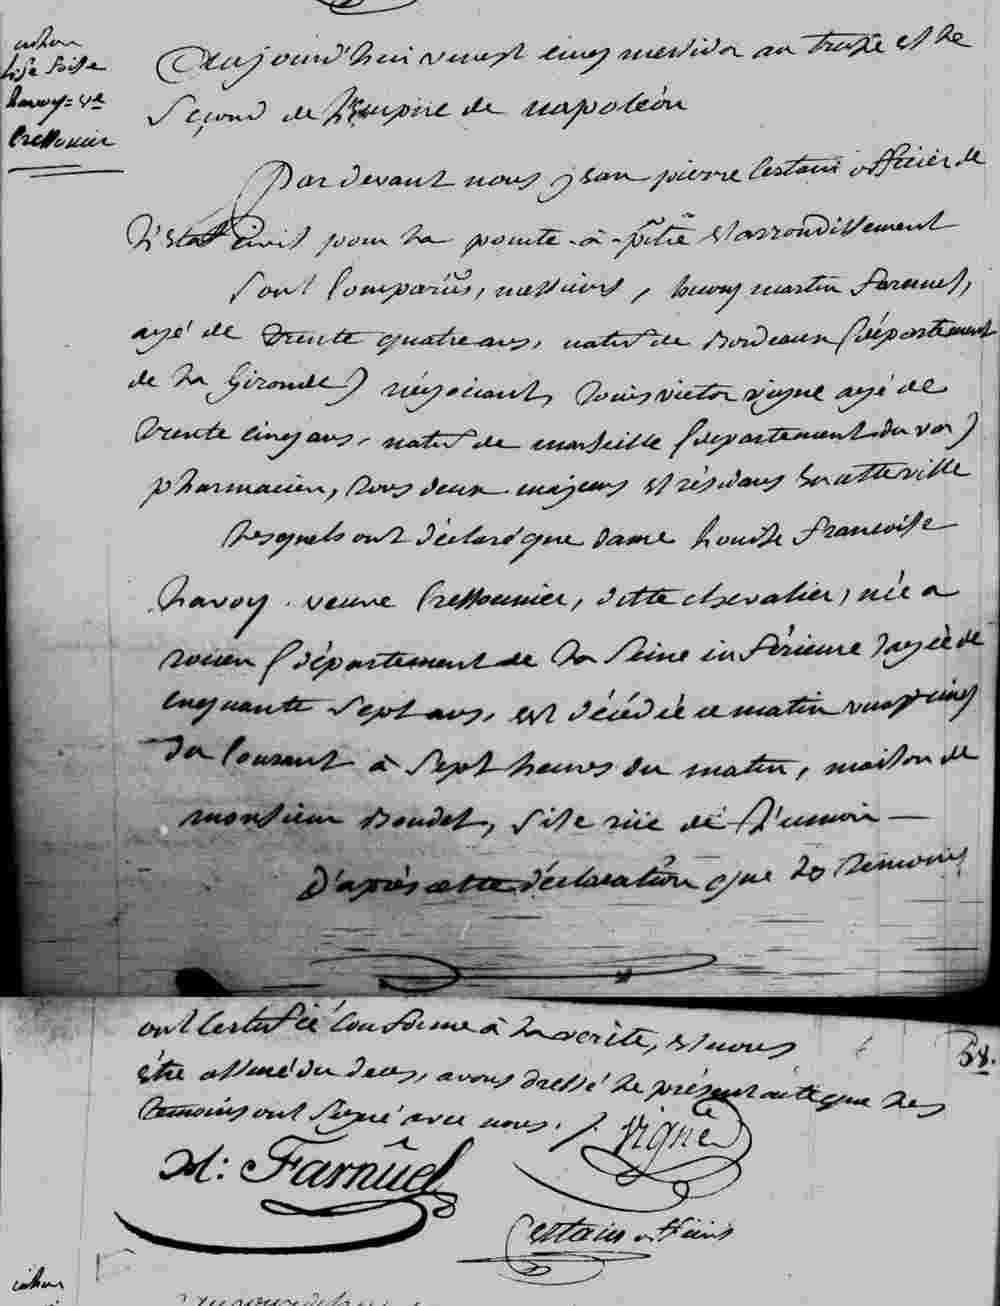 havoy = ve
Cressonier
Aujourd'hui vingt cinq messidor an treize et le
second de l'Empire de napoléon
Par devant nous jean pierre Certain officier de
L'Etat Civil pour la pointe-à-pitre et arrondissement
Sont Comparus, messieurs, henry martin Farnuel,
agé de trente quatre ans, natif de Bordeaux (département
de la Gironde) négociant, Louis victor vigne agé de
trente cinq ans, natif de marseille (département du var)
pharmacien, tous deux majeurs et résidans En cette ville
Lesquels ont déclaré que dame Louise francoise
havoy veuve Cressonnier, ditte chevalier, née a
rouen (département de la Seine inférieure) agée de
cinquante Sept ans, est décédée ce matin vingt cinq
du Courant à Sept heures du matin, maison de
monsieur Boudet, Sise rüe de L'union
D'après cette déclaration que les témoins
ont Certifié Conforme à La vérité, et nous
être assuré du deces, avons dressé le présent acte que les
témoins ont Signé avec nous. Vigne
M: Farnüel
Certain officier
58.